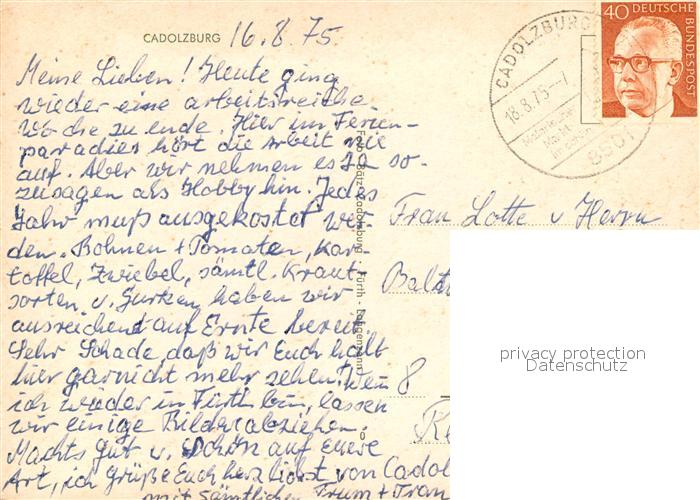 CADOLZBURG 16.8.75.
Meine Lieben! Heute ging
wieder eine arbeitsreiche
Woche zu ende. Hier im Ferien-
paradies hört die Arbeit nie
auf. Aber wir nehmen es ja so-
zusagen als Hobby hin. Jedes
Jahr muß ausgekostet wer-
den. Bohnen + Tomaten, Kar-
toffel, Zwiebel, sämtl. Kraut-
sorten u. Gurken haben wir
ausreichend auf Ernte bereit.
Sehr Schade, daß wir Euch halt
hier garnicht mehr sehen! Wenn
ich wieder in Fürth bin, lassen
wir einige Bilder abziehen.
Machts gut u. schön auf eure
Art, ich grüße Euch herzlichst von Cadol
mit sämtlichen
Foto Bätz Cadolzburg Fürth -
CADOLZBURG
18.8.75-7
8501
40 DEUTSCHE
BUNDESPOST
Frau Lotte u Herrn
8
privacy protection
Datenschutz